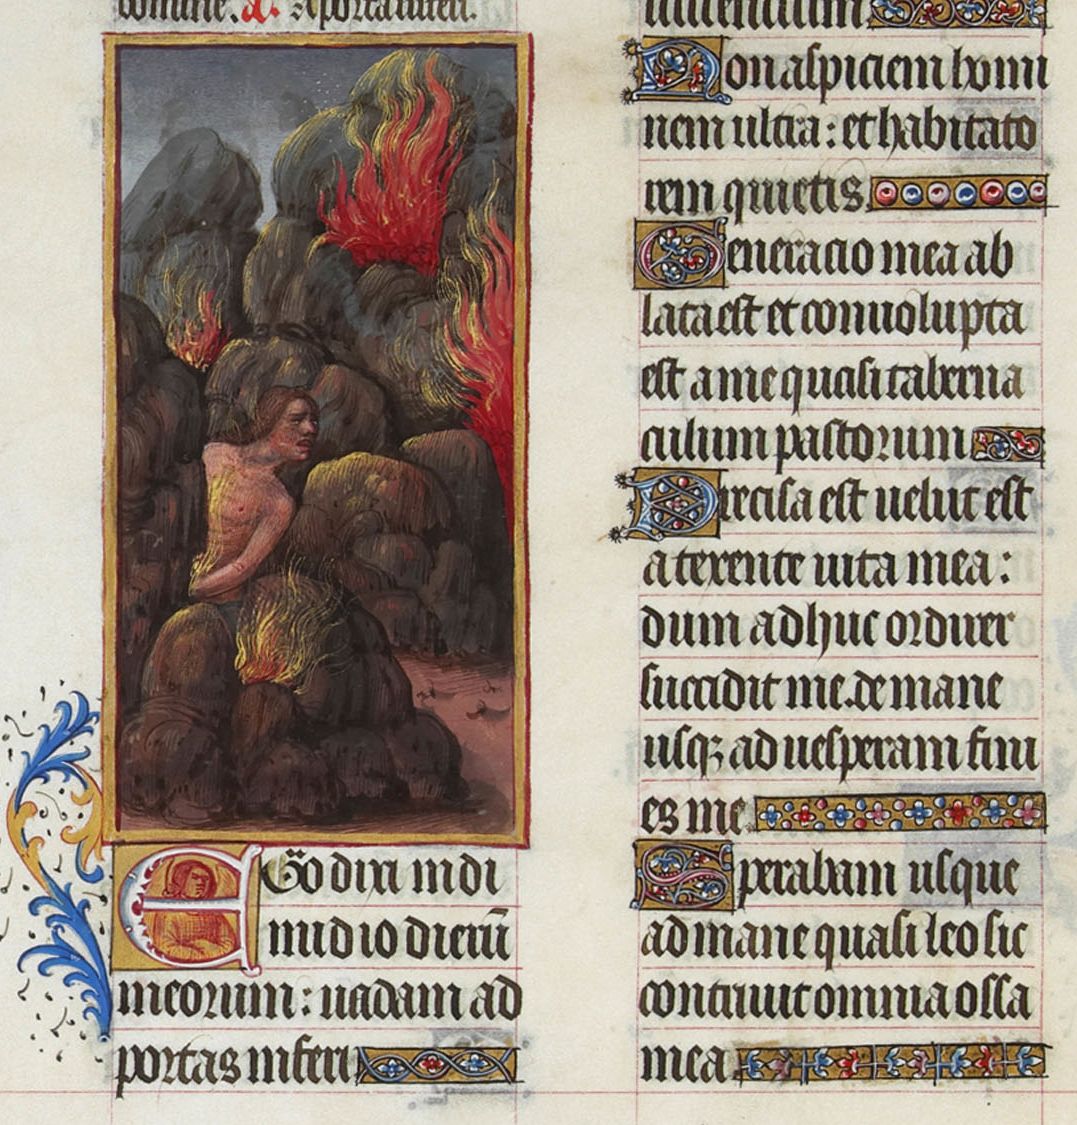 domine. A. A porta inferi.
EGo dixi in di
midio dierū
meorum: uadam ad
portas inferi
uiuentium
Non aspiciem homi
nem ultra: et habitato
rem quietis
Generacio mea ab
lata est et conuolupta
est a me quasi taberna
culum pastorum
Precisa est uelut est
a texente uita mea:
dum adhuc ordirer
succidit me. de mane
usqꝫ ad uesperam fini
es me
Sperabam usque
ad mane quasi leo sic
contriuit omnia ossa
mea